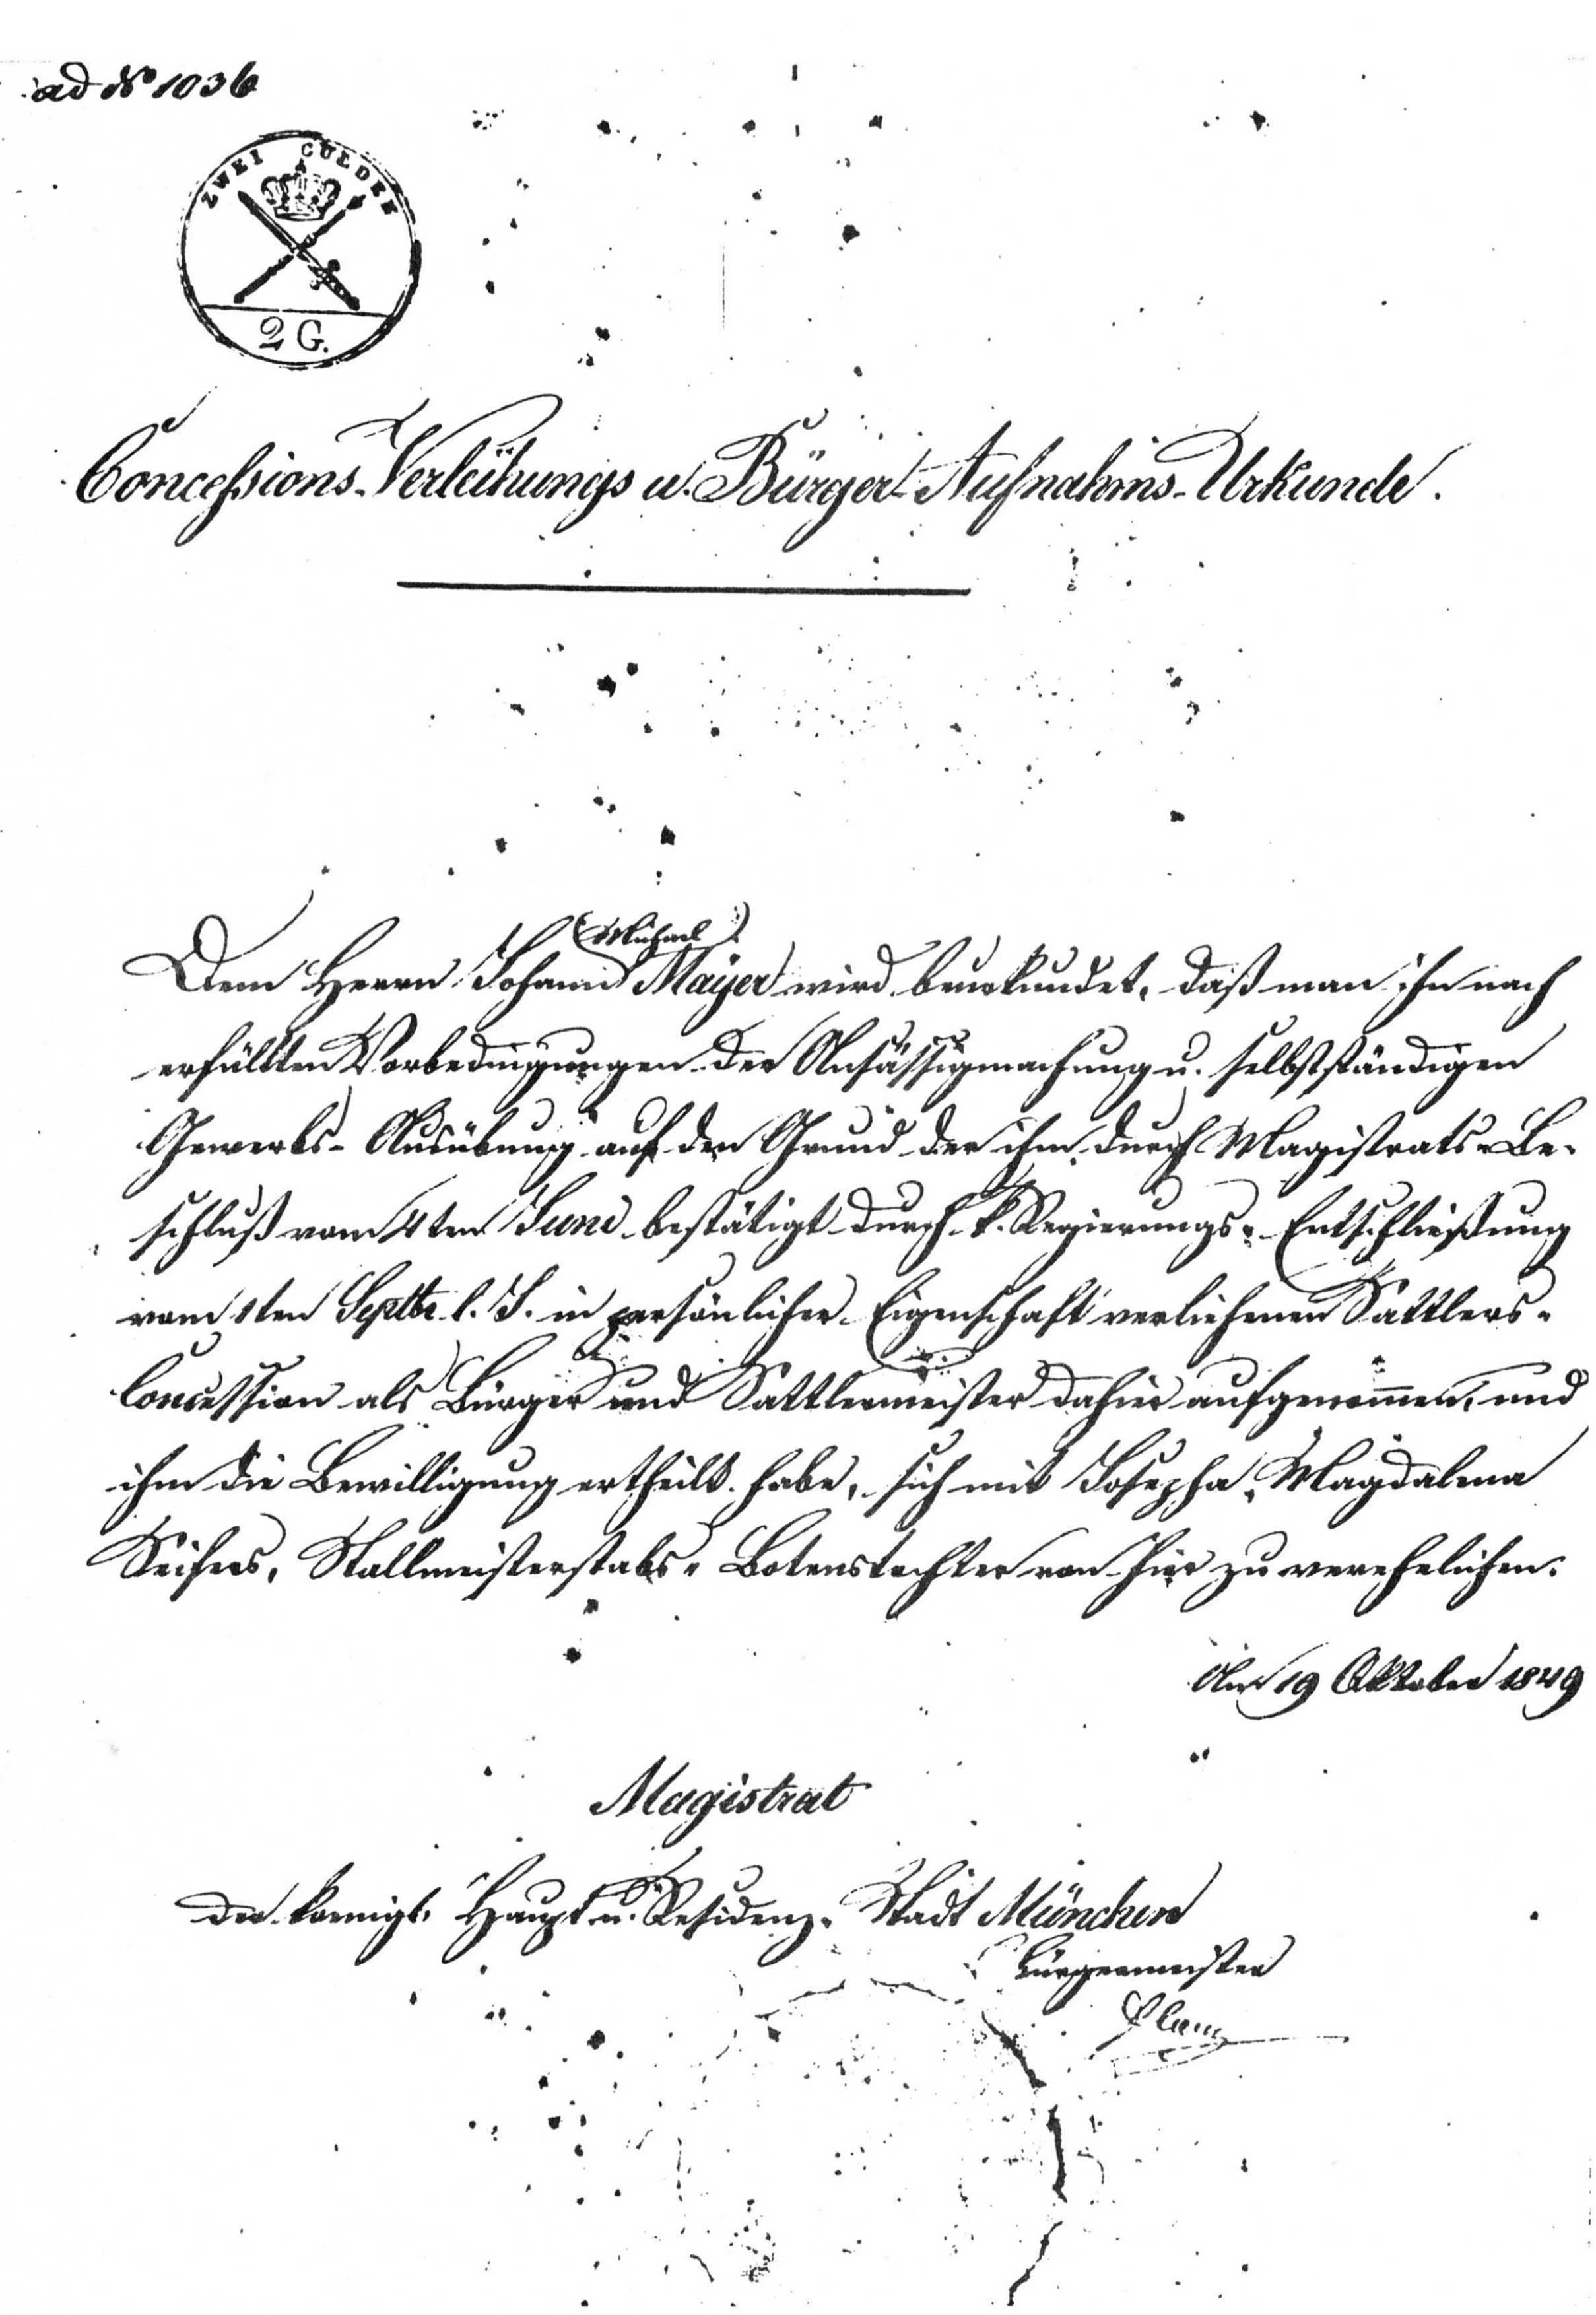 ad No 1036
ZWEI GULDEN
2 G.
Concessions-Verleihungs u. Bürger-Aufnahms-Urkunde.
(Michael)
Dem Herrn Johann Mayer wird beurkundet, daß man ihn nach
erfüllten Vorbedingungen der Ansässigmachung u. selbstständigen
Gewerbs-Ausübung auf den Grund der ihm durch Magistrats-Be-
schluß vom 4ten Juni bestätigt durch k. Regierungs-Entschließung
vom 1ten Septbr. l. J. in persönlicher Eigenschaft verliehenen Sattlers-
Concession als Bürger und Sattlermeister dahier aufgenommen, und
ihm die Bewilligung ertheilt habe, sich mit Josepha Magdalena
Stallmeisterstabs-Botenstochter von hier zu verehelichen.
Am 19 Oktober 1849
Magistrat
der koenigl. Haupt u. Residenz-Stadt München
Bürgermeister